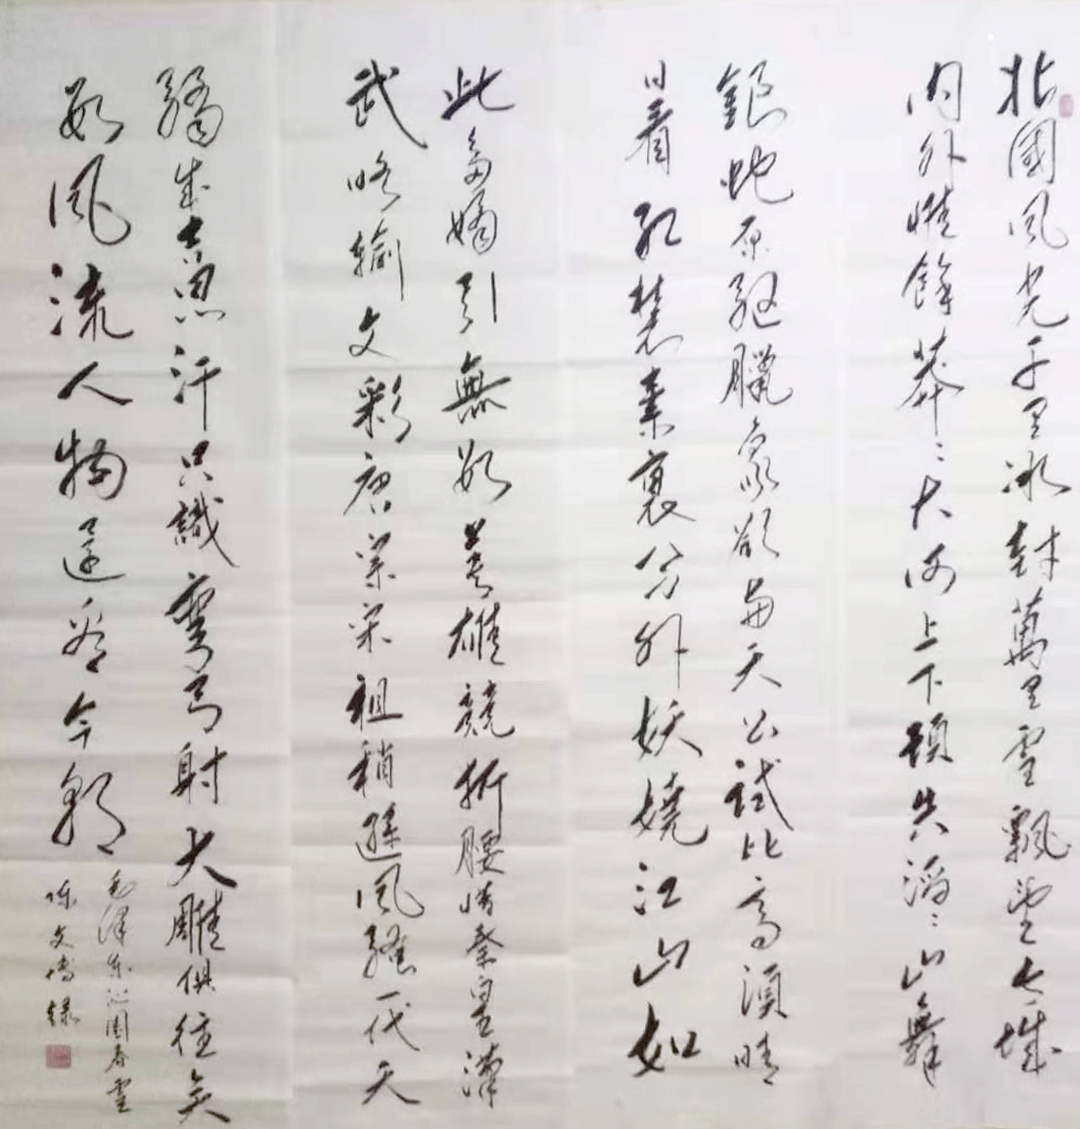 北國風光千里冰封萬里雪飄望長城
内外惟餘莽〻大河上下頓失滔〻山舞
銀蛇原馳臘象欲與天公試比高須晴
日看紅裝素裹分外妖嬈江山如
此多嬌引無数英雄競折腰惜秦皇漢
武略輸文彩唐宗宋祖稍遜風騷一代天
驕成吉思汗只識彎弓射大雕俱往矣
数風流人物還看今朝
毛澤東沁園春雪
陈文 録